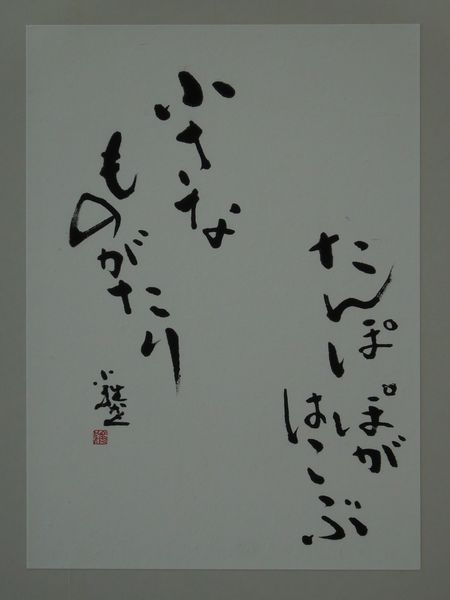 たんぽぽが
はこぶ
小さな
ものがたり